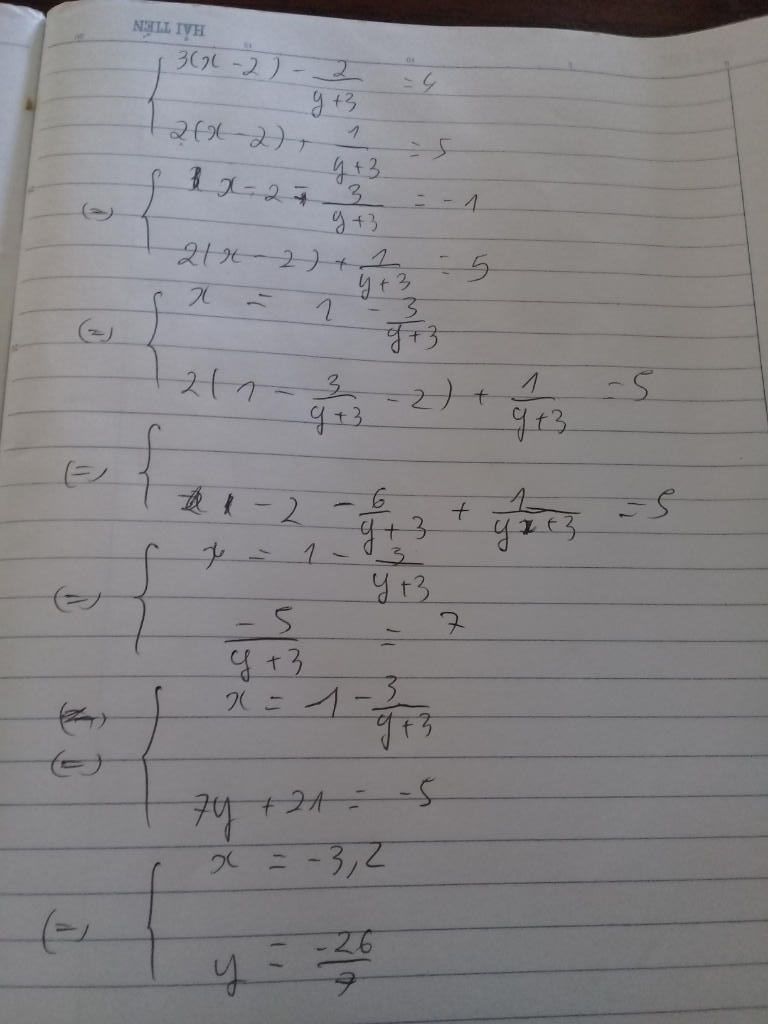 HẢI TIẾN
3(x - 2) - 2/(y+3) = 4
2(x - 2) + 1/(y+3) = 5
(=) x - 2 - 3/(y+3) = -1
2(x - 2) + 1/(y+3) = 5
(=) x = 1 - 3/(y+3)
2(1 - 3/(y+3) - 2) + 1/(y+3) = 5
(=)
- 2 - 6/(y+3) + 1/(y+3) = 5
(=) x = 1 - 3/(y+3)
-5/(y+3) = 7
(=) x = 1 - 3/(y+3)
7y + 21 = -5
(=) x = -3,2
y = -26/7